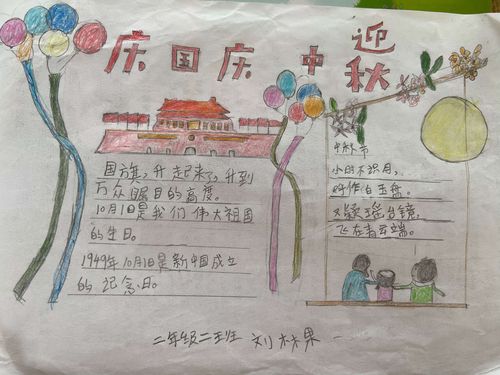 庆国庆 迎中秋
国旗，升起来了，升到
万众瞩目的高度。
10月1日是我们伟大祖国
的生日。
1949年10月1日是新中国成立
的纪念日。
中秋节
小时不识月，
呼作白玉盘。
又疑瑶台镜，
飞在青云端。
二年级二班 刘林果